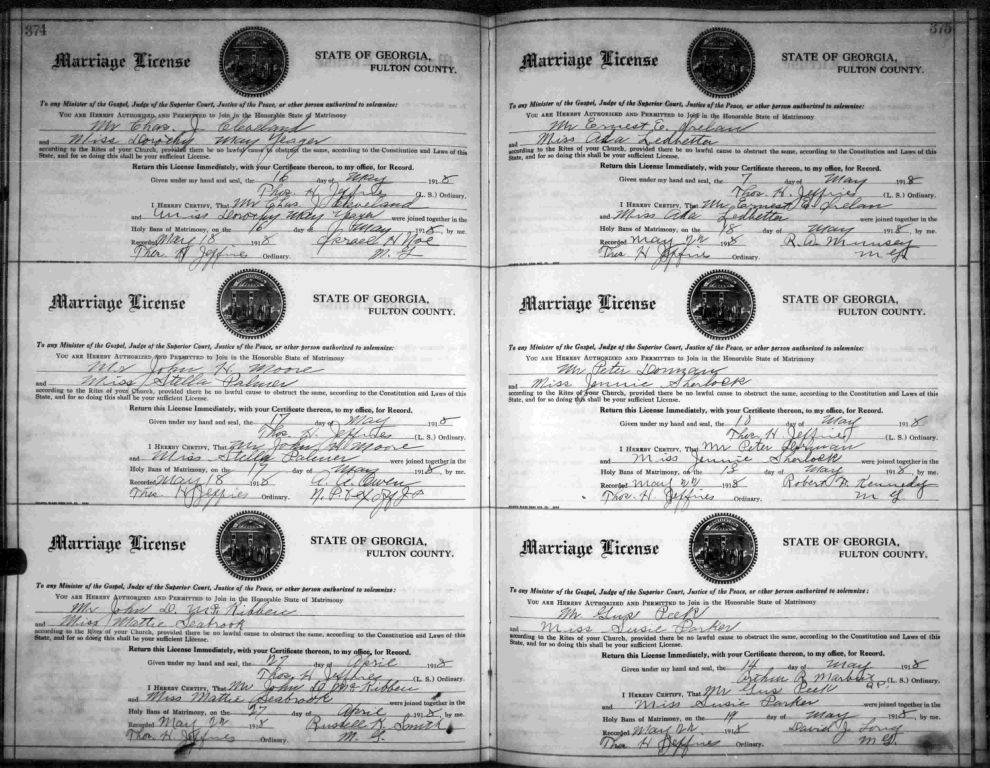 374
Marriage License
STATE OF GEORGIA,
FULTON COUNTY.
To any Minister of the Gospel, Judge of the Superior Court, Justice of the Peace, or other person authorized to solemnize:
YOU ARE HEREBY AUTHORIZED AND PERMITTED to Join in the Honorable State of Matrimony
Mr Chas. J. Cleveland
and Miss Dorothy May Yeager
according to the Rites of your Church, provided there be no lawful cause to obstruct the same, according to the Constitution and Laws of this
State, and for so doing this shall be your sufficient License.
Return this License Immediately, with your Certificate thereon, to my office, for Record.
Given under my hand and seal, the 16 day of May 1918
Thos. H. Jeffries (L. S.) Ordinary.
I HEREBY CERTIFY, That Mr Chas. J. Cleveland
and Miss Dorothy May Yeager were joined together in the
Holy Bans of Matrimony, on the 16 day of May 1918, by me.
Recorded May 18 1918
Thos. H. Jeffries Ordinary. M. G.
Marriage License
STATE OF GEORGIA,
FULTON COUNTY.
To any Minister of the Gospel, Judge of the Superior Court, Justice of the Peace, or other person authorized to solemnize:
YOU ARE HEREBY AUTHORIZED AND PERMITTED to Join in the Honorable State of Matrimony
Mr John H. Moore
and Miss Stella Palmer
according to the Rites of your Church, provided there be no lawful cause to obstruct the same, according to the Constitution and Laws of this
State, and for so doing this shall be your sufficient License.
Return this License Immediately, with your Certificate thereon, to my office, for Record.
Given under my hand and seal, the 17 day of May 1918
Thos. H. Jeffries (L. S.) Ordinary.
I HEREBY CERTIFY, That Mr John H Moore
and Miss Stella Palmer were joined together in the
Holy Bans of Matrimony, on the 17 day of May 1918, by me.
Recorded May 18 1918 A. A. Owen
Thos H Jeffries Ordinary. N. P. & Ex of J. P.
Marriage License
STATE OF GEORGIA,
FULTON COUNTY.
To any Minister of the Gospel, Judge of the Superior Court, Justice of the Peace, or other person authorized to solemnize:
YOU ARE HEREBY AUTHORIZED AND PERMITTED to Join in the Honorable State of Matrimony
Mr John D. McKibben
and Miss Mattie Seabrook
according to the Rites of your Church, provided there be no lawful cause to obstruct the same, according to the Constitution and Laws of this
State, and for so doing this shall be your sufficient License.
Return this License Immediately, with your Certificate thereon, to my office, for Record.
Given under my hand and seal, the 27 day of April 1918
Thos. H Jeffries (L. S.) Ordinary.
I HEREBY CERTIFY, That Mr John D McKibben
and Miss Mattie Seabrook were joined together in the
Holy Bans of Matrimony, on the 27 day of April 1918, by me.
Recorded May 22 1918 Russell K. Smith
Thos. H Jeffries Ordinary. M. G.
375
Marriage License
STATE OF GEORGIA,
FULTON COUNTY.
To any Minister of the Gospel, Judge of the Superior Court, Justice of the Peace, or other person authorized to solemnize:
YOU ARE HEREBY AUTHORIZED AND PERMITTED to Join in the Honorable State of Matrimony
Mr Ernest E.
Miss Ada Ledbetter
according to the Rites of your Church, provided there be no lawful cause to obstruct the same, according to the Constitution and Laws of this
State, and for so doing this shall be your sufficient License.
Return this License Immediately, with your Certificate thereon, to my office, for Record.
Given under my hand and seal, the 7 day of May 1918
Thos. H. Jeffries (L. S.) Ordinary.
I HEREBY CERTIFY, That Mr Ernest E
and Miss Ada Ledbetter were joined together in the
Holy Bans of Matrimony, on the 18 day of May 1918, by me.
Recorded May 22 1918
Thos H Jeffries Ordinary. M G
Marriage License
STATE OF GEORGIA,
FULTON COUNTY.
To any Minister of the Gospel, Judge of the Superior Court, Justice of the Peace, or other person authorized to solemnize:
YOU ARE HEREBY AUTHORIZED AND PERMITTED to Join in the Honorable State of Matrimony
Mr Peter Dornan
and Miss Jennie Sherlock
according to the Rites of your Church, provided there be no lawful cause to obstruct the same, according to the Constitution and Laws of this
State, and for so doing this shall be your sufficient License.
Return this License Immediately, with your Certificate thereon, to my office, for Record.
Given under my hand and seal, the 18 day of May 1918
Thos. H. Jeffries (L. S.) Ordinary.
I HEREBY CERTIFY, That Mr Peter Dornan
and Miss Jennie Sherlock were joined together in the
Holy Bans of Matrimony, on the 18 day of May 1918, by me.
Recorded May 22 1918 Robert W. Kennedy
Thos. H. Jeffries Ordinary. M G
Marriage License
STATE OF GEORGIA,
FULTON COUNTY.
To any Minister of the Gospel, Judge of the Superior Court, Justice of the Peace, or other person authorized to solemnize:
YOU ARE HEREBY AUTHORIZED AND PERMITTED to Join in the Honorable State of Matrimony
Mr Gus Peek
and Miss Susie Parker
according to the Rites of your Church, provided there be no lawful cause to obstruct the same, according to the Constitution and Laws of this
State, and for so doing this shall be your sufficient License.
Return this License Immediately, with your Certificate thereon, to my office, for Record.
Given under my hand and seal, the 14 day of May 1918
Arthur R. Marbut (L. S.) Ordinary.
I HEREBY CERTIFY, That Mr Gus Peek
and Miss Susie Parker were joined together in the
Holy Bans of Matrimony, on the 19 day of May 1918, by me.
Recorded May 22 1918 David J. Long
Thos H Jeffries Ordinary. M G.